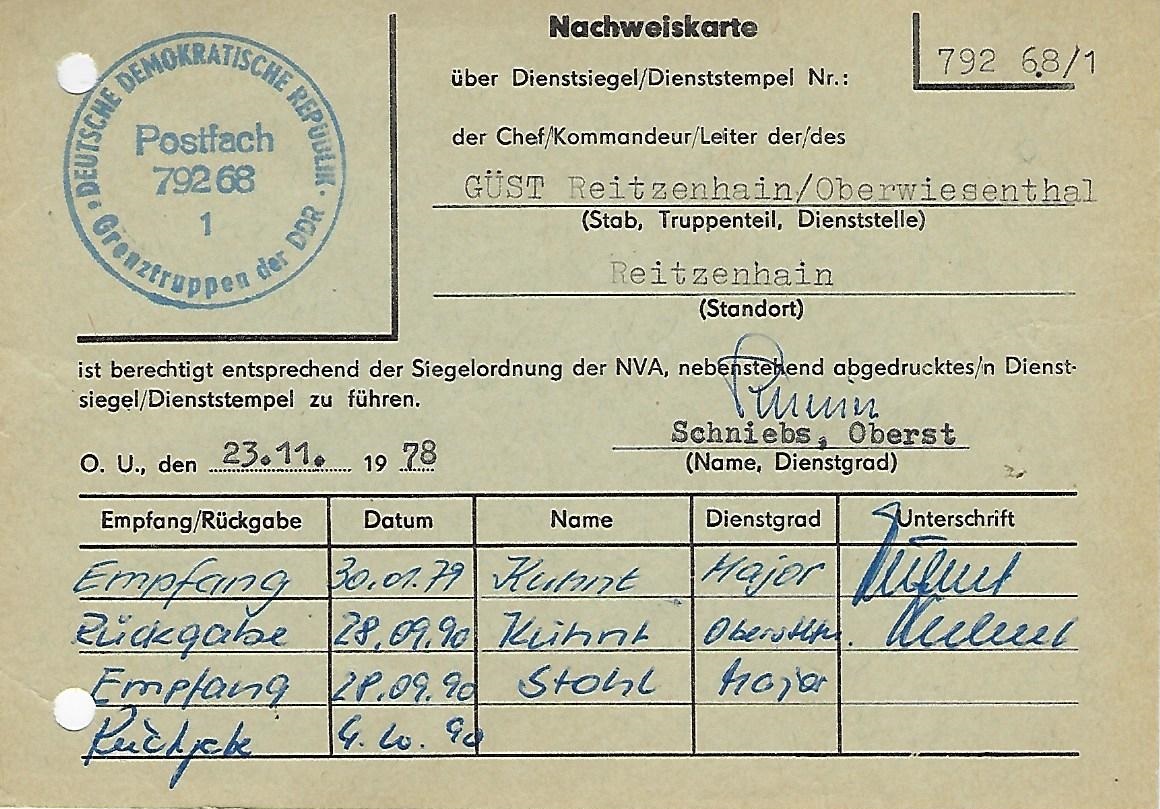 Nachweiskarte
DEUTSCHE DEMOKRATISCHE REPUBLIK
Postfach
792 68
1
Grenztruppen der DDR
über Dienstsiegel/Dienststempel Nr.:
792 68/1
der Chef/Kommandeur/Leiter der/des
GÜST Reitzenhain/Oberwiesenthal
(Stab, Truppenteil, Dienststelle)
Reitzenhain
(Standort)
ist berechtigt entsprechend der Siegelordnung der NVA, nebenstehend abgedrucktes/n Dienst-
siegel/Dienststempel zu führen.
Schniebs, Oberst
O. U., den 23.11. 19 78
(Name, Dienstgrad)
Empfang/Rückgabe Datum Name Dienstgrad Unterschrift
Empfang 30.01.79 Kühnt Major
Rückgabe 28.09.90 Kühnt Oberstltn.
Empfang 28.09.90 Stohl Major
Rückgabe 4.10.90